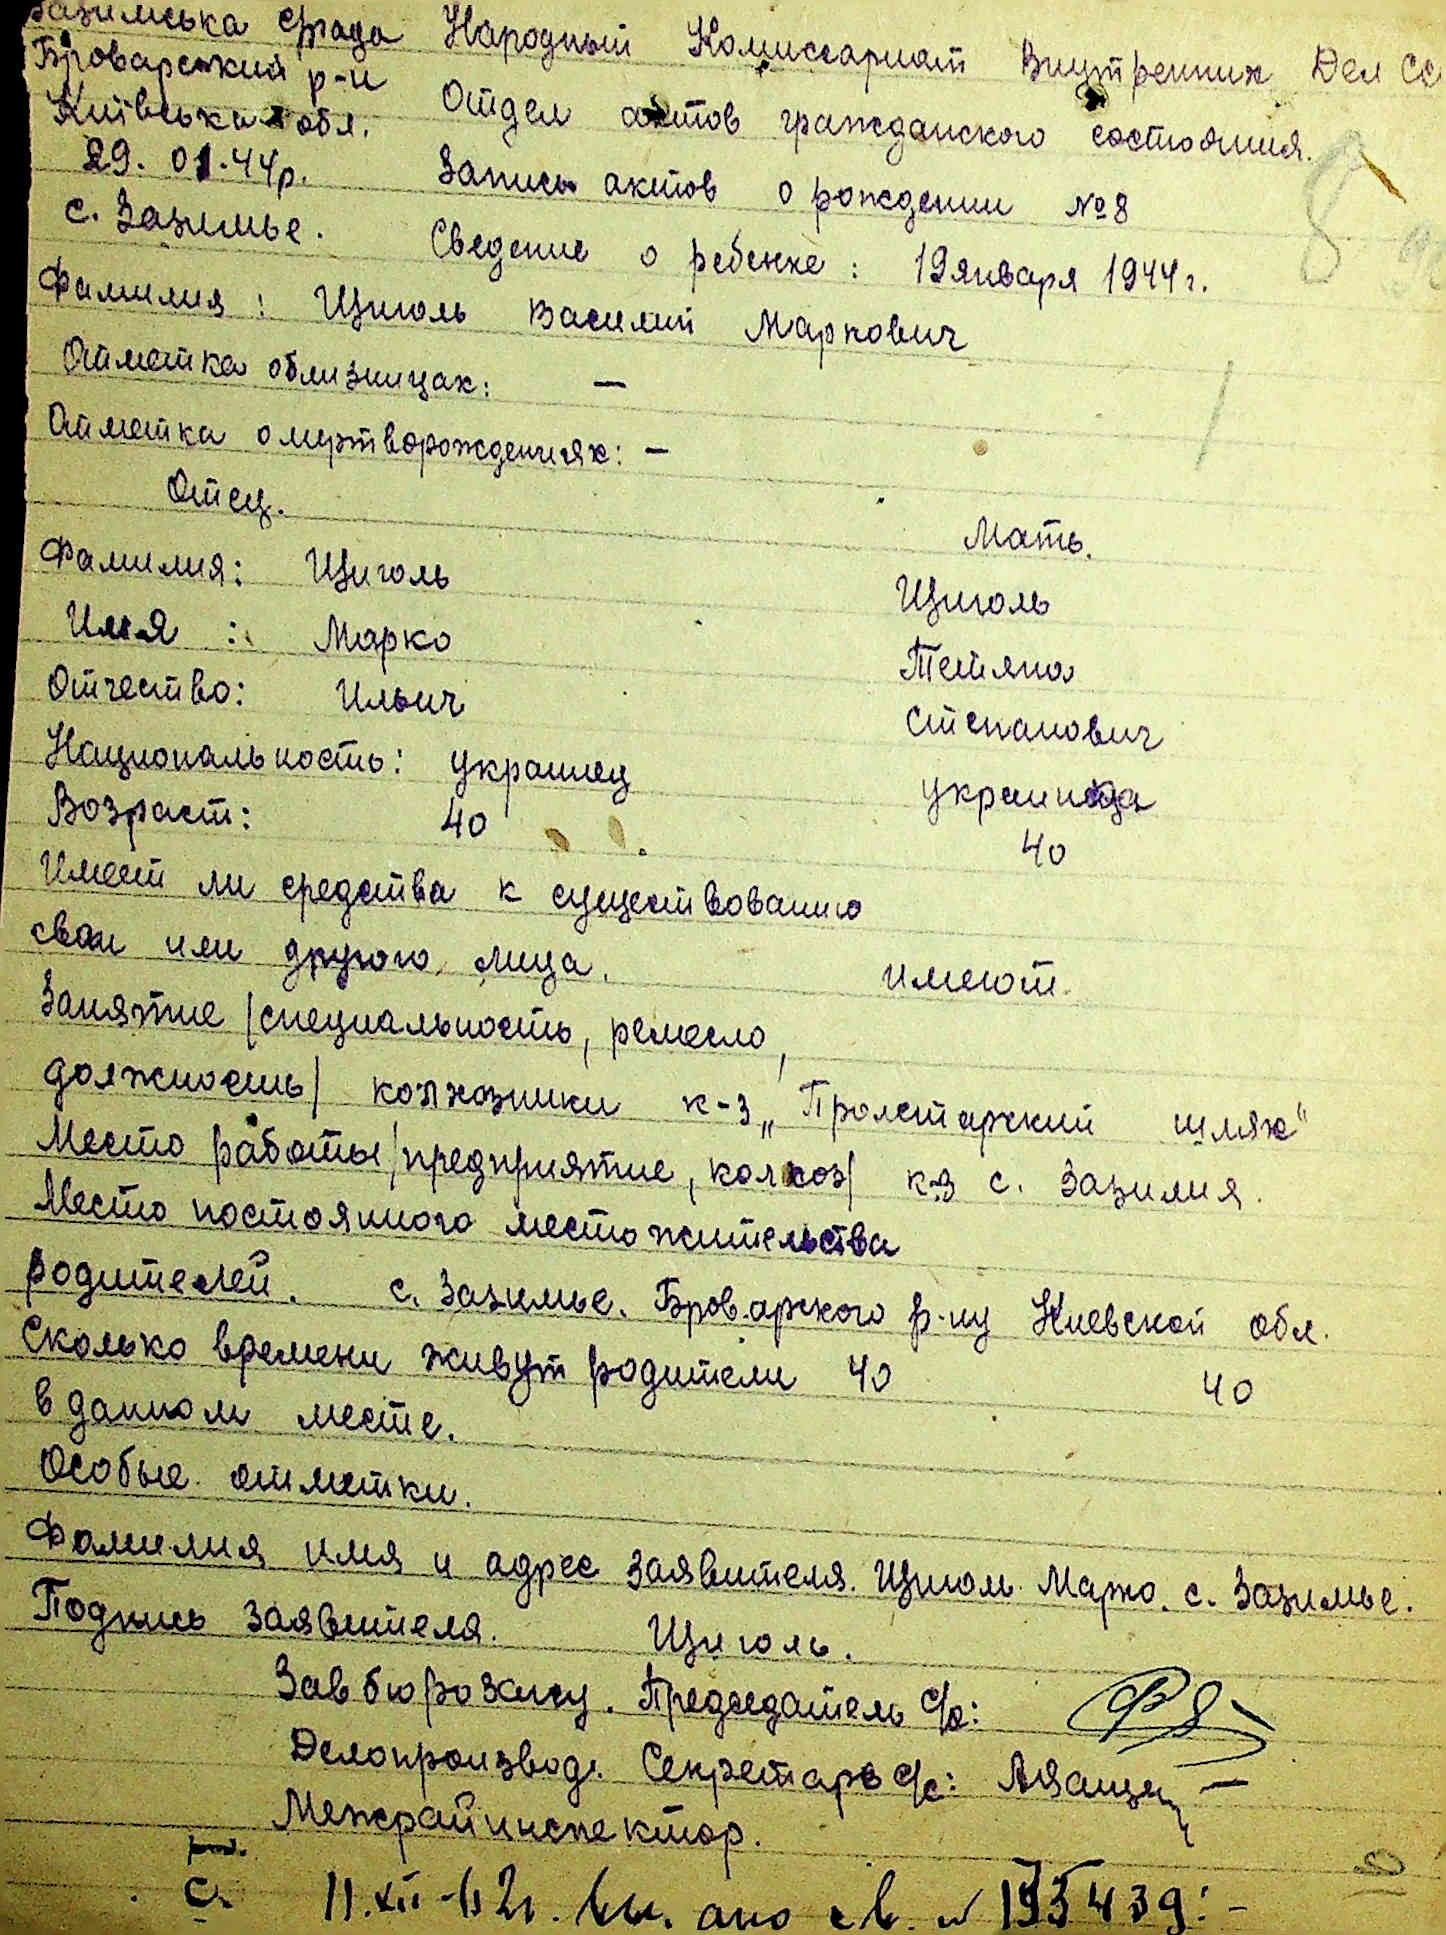 Зазимська с/рада Народный Комиссариат Внутренних Дел СС
Броварский р-н
Київська обл. Отдел актов гражданского состояния.
29. 01. 44р. Запись актов о рождении №8
с. Зазимье. Сведение о ребенке: 19 января 1944 г.
8
Фамилия: Щиголь Василий Маркович
Отметка облизницах: —
Отметка о мертворождениях: —
Отец. Мать.
Фамилия: Щиголь Щиголь
Имя: Марко Тетяна
Отчество: Ильич Степанович
Национальность: украинец украинца
Возраст: 40 40
Имеет ли средства к существованию
свои или другого лица. имеют.
Занятие /специальность, ремесло,
должность/ колхозники к-з „Пролетарский шлях"
Место работы /предприятие, колхоз/ к-з с. Зазимия.
Место постоянного местожительства
родителей. с. Зазимье. Броварского р-ну Киевской обл.
Сколько времени живут родители 40 40
в данном месте.
Особые отметки.
Фамилия имя и адрес заявителя. Щиголь Марко. с. Зазимье.
Подпись заявителя. Щиголь.
Зав бюро загсу. Председатель с/с:
Делопроизвод. Секретарь с/с:
Межрайинспектор.
11.XII-62г. св. № 195439:-